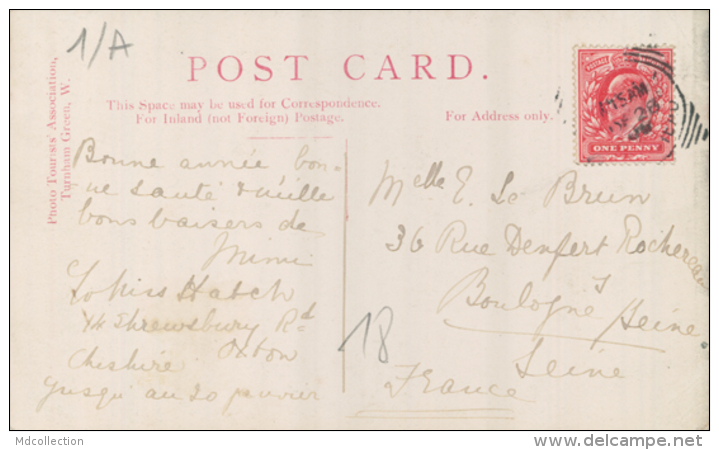 1/A
POST CARD.
Photo Tourists' Association,
Turnham Green, W.
This Space may be used for Correspondence.
For Inland (not Foreign) Postage.
For Address only.
POSTAGE
ONE PENNY
Bonne année bon-
ne santé
bons baisers de
Mimi
Miss Hatch
Shrewsbury Rd
Oxton
Cheshire
jusqu'au 20 janvier
Melle E. Le Brun
36 Rue Denfert Rochereau
Boulogne s/
Seine
Seine
France
18
Mdcollection
delcampe.net